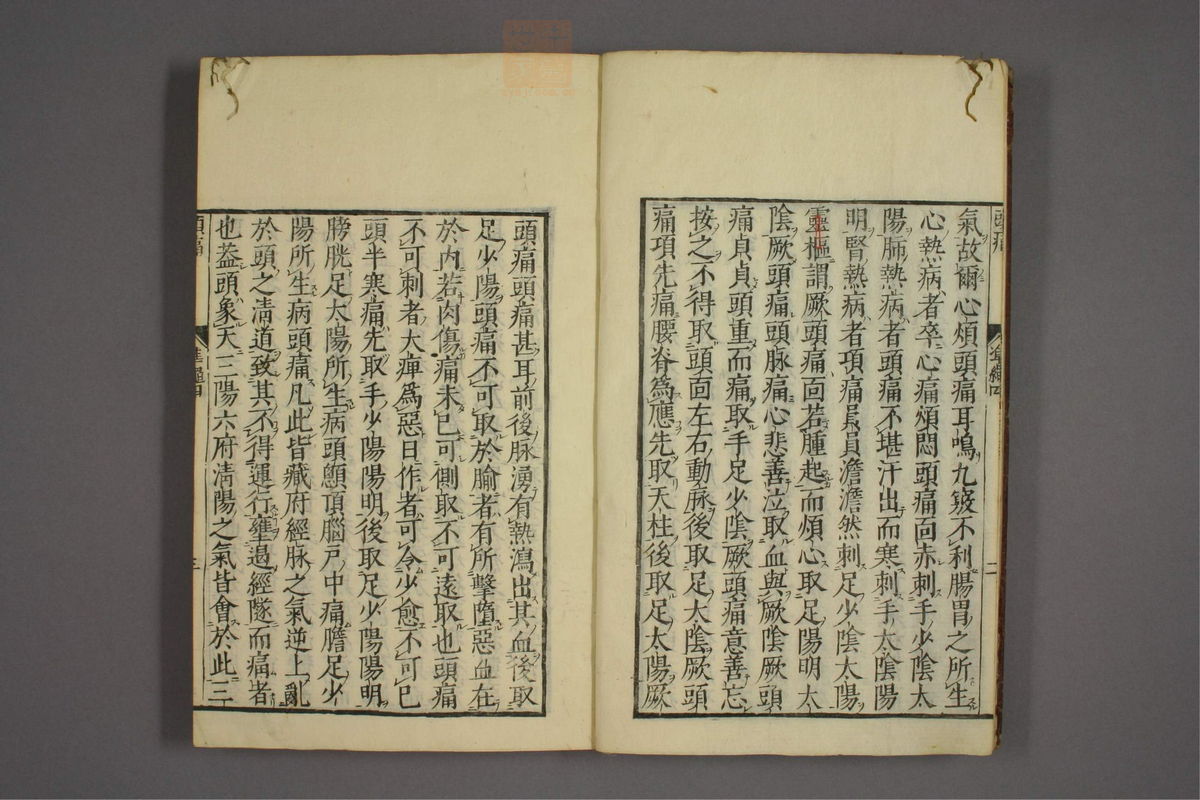 氣故爾心煩頭痛耳鳴九竅不利腸胃之所生
心熱病者卒心痛煩悶頭痛面赤刺手少陰太
陽肺熱病者頭痛不堪汗出而寒刺手太陰陽
明腎熱病者項痛員員澹澹然刺足少陰太陽
靈樞謂厥頭痛面若腫起而煩心取足陽明太
陰厥頭痛頭脉痛心悲善泣取血與厥陰厥頭
痛貞貞頭重而痛取手足少陰厥頭痛意善忘
按之不得取頭面左右動脉後取足太陰厥頭
痛項先痛腰脊為應先取天柱後取足太陽厥
頭痛頭痛甚耳前後脉湧有熱瀉出其血後取
足少陽頭痛不可取於腧者有所擊墮惡血在
於内若肉傷痛未已可側取不可遠取也頭痛
不可刺者大痺為惡日作者可令少愈不可已
頭半寒痛先取手少陽陽明後取足少陽陽明
膀胱足太陽所生病頭顖頂腦戸中痛膽足少
陽所生病頭痛凡此皆藏府經脉之氣逆上亂
於頭之清道致其不得運行壅遏經隧而痛者
也葢頭象天三陽六府清陽之氣皆會於此三